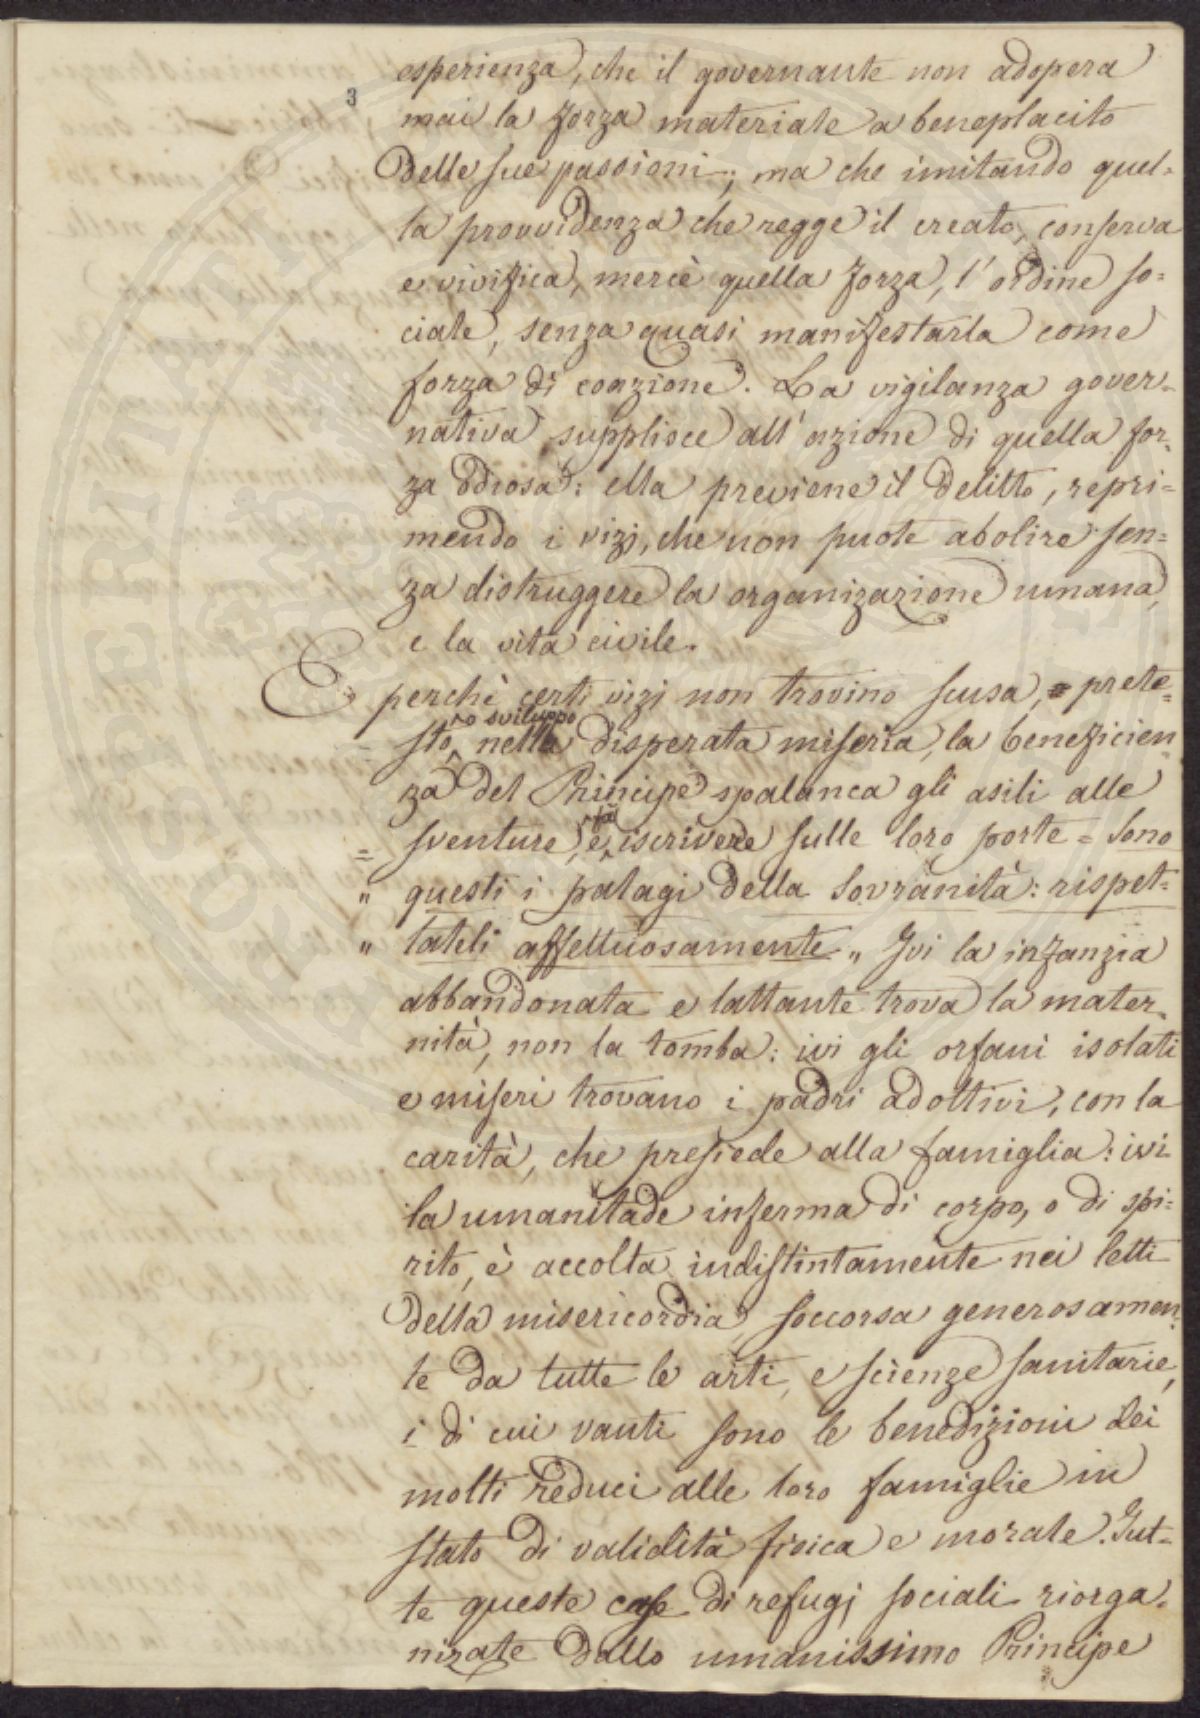 3
esperienza, che il governante non adopera
mai la forza materiale a beneplacito
delle sue passioni; ma che imitando quel=
la provvidenza che regge il creato, conserva
e vivifica, mercè quella forza, l'ordine so=
ciale, senza quasi manifestarla come
forza di coazione. La vigilanza gover=
nativa supplisce all'azione di quella for=
za odiosa: ella previene il delitto, repri=
mendo i vizj, che non puote abolire sen=
za distruggere la organizazione umana,
e la vita civile.
E perchè certi vizj non trovino scusa, o prete=
sto, o sviluppo nella disperata miseria, la beneficien
za del Principe spalanca gli asili alle
sventure, e fa iscrivere sulle loro porte = Sono
= questi i palagi della Sovranità: rispet=
" tateli affettuosamente „ Ivi la infanzia
" abbandonata e lattante trova la mater=
nità, non la tomba: ivi gli orfani isolati
e miseri trovano i padri adottivi, con la
carità, che presiede alla famiglia: ivi
la umanitade inferma di corpo, o di spi=
rito, è accolta indistintamente nei letti
della misericordia, soccorsa generosamen
te da tutte le arti, e scienze sanitarie,
i di cui vanti sono le benedizioni dei
molti reduci alle loro famiglie in
stato di validità fisica e morale. Tut=
te queste case di refugj sociali riorga=
nizate dallo umanissimo Principe
PERINATI